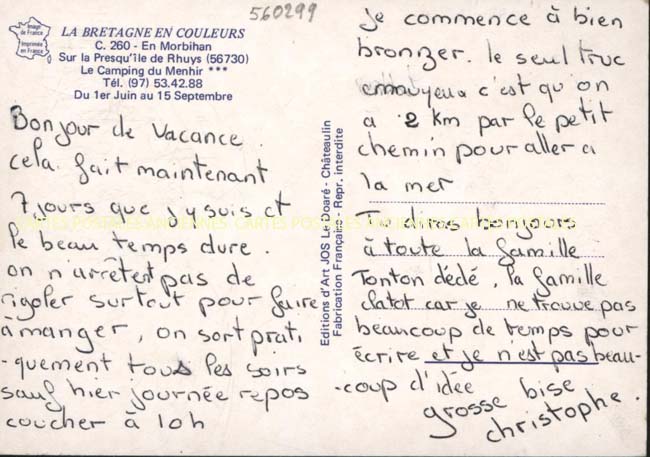 560299
Image
de France
Imprimée
en France
LA BRETAGNE EN COULEURS
C. 260 - En Morbihan
Sur la Presqu'île de Rhuys (56730)
Le Camping du Menhir ***
Tél. (97) 53.42.88
Du 1er Juin au 15 Septembre
Bonjour de vacance.
cela fait maintenant
7 jours que j'y suis et
le beau temps dure.
on n'arrêtent pas de
rigoler surtout pour faire
à manger, on sort prati
-quement tous les soirs
sauf hier journée repos
coucher à 10h
Editions d'Art JOS Le Doaré - Châteaulin
Fabrication Française - Repr. interdite
je commence à bien
bronzer. le seul truc
ennuyeux c'est qu'on
a 2 km par le petit
chemin pour aller a
la mer
Tu diras bonjours
à toute la famille
Tonton dédé, la famille
clatot car je ne trouve pas
beaucoup de temps pour
écrire et je n'est pas beau-
-coup d'idée
grosse bise
christophe.
CARTES POSTALES ANCIENNES CARTES POSTALES ANCIENNES CARTES POSTALES